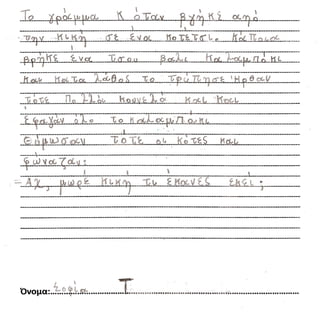 Το γράμμα Κ όταν βγήκε από
την κική σε ένα κοτέτσι. Κάποια
βρήκε ένα τσου βαλι καλαμπόκι
και κατα λάθος το τρύπησε Ηρθαν
τότε Πολλά κουνελά και και
έφαγαν όλο το καλαμπόκι
Θύμωσαν τότε οι κότες και
φώναζαν:
- Αχ, μωρέ κική τι έκανες εκεί;
Όνομα: Σοφία Τ